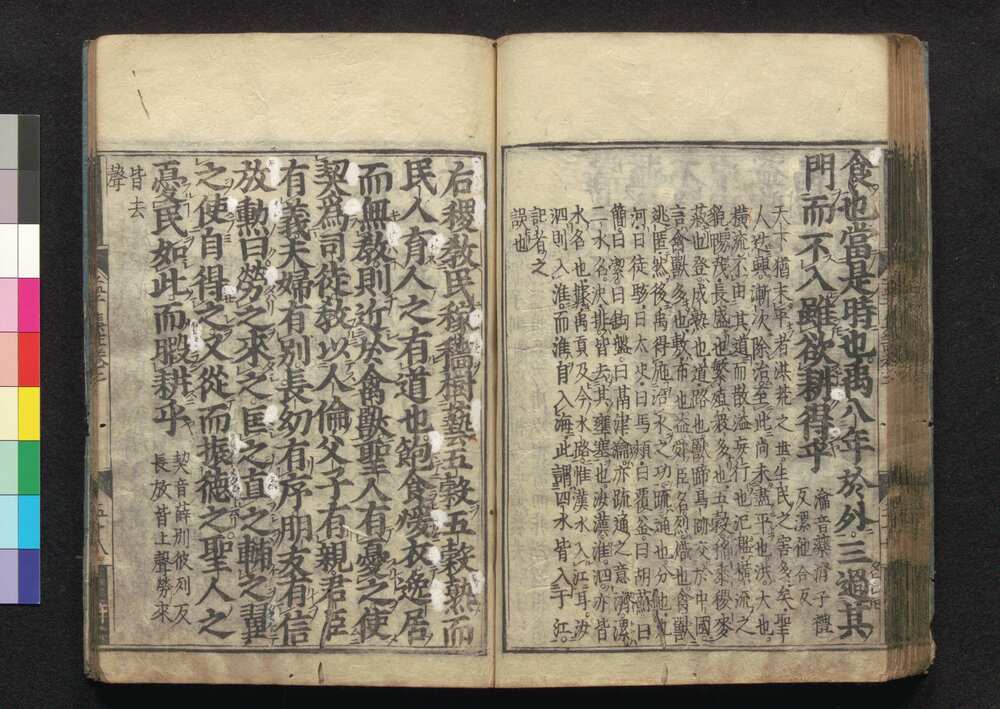 食也當是時也禹八年於外三過其
門而不入雖欲耕得乎
瀹音藥濟子禮
反漯他合反
天下猶未平者洪荒之世生民之害多矣聖
人迭興漸次除治至此尚未盡平也洪大也
橫流不由其道而散溢妄行也氾濫橫流之
貌暢茂長盛也繁殖衆多也五穀稻黍稷麥
菽也登成熟也道路也獸蹄鳥跡交於中國
言禽獸多也敷布也益舜臣名烈熾也禽獸
逃匿然後禹得施治水之功疏通也分也九
河曰徒駭曰太史曰馬頰曰覆釜曰胡蘇曰
簡曰潔曰鉤盤曰鬲津瀹亦疏通之意濟漯
二水名決排皆去其壅塞也汝漢淮泗亦皆
水名也據禹貢及今水路惟漢水入江耳汝
泗則入淮而淮自入海此謂四水皆入于江
記者之
誤也
后稷敎民稼穡樹藝五穀五穀熟而
民人育人之有道也飽食煖衣逸居
而無敎則近於禽獸聖人有憂之使
契爲司徒敎以人倫父子有親君臣
有義夫婦有別長幼有序朋友有信
放勳曰勞之來之匡之直之輔之翼
之使自得之又從而振德之聖人之
憂民如此而暇耕乎
契音薛別彼列反
長放皆上聲勞來
皆去
聲